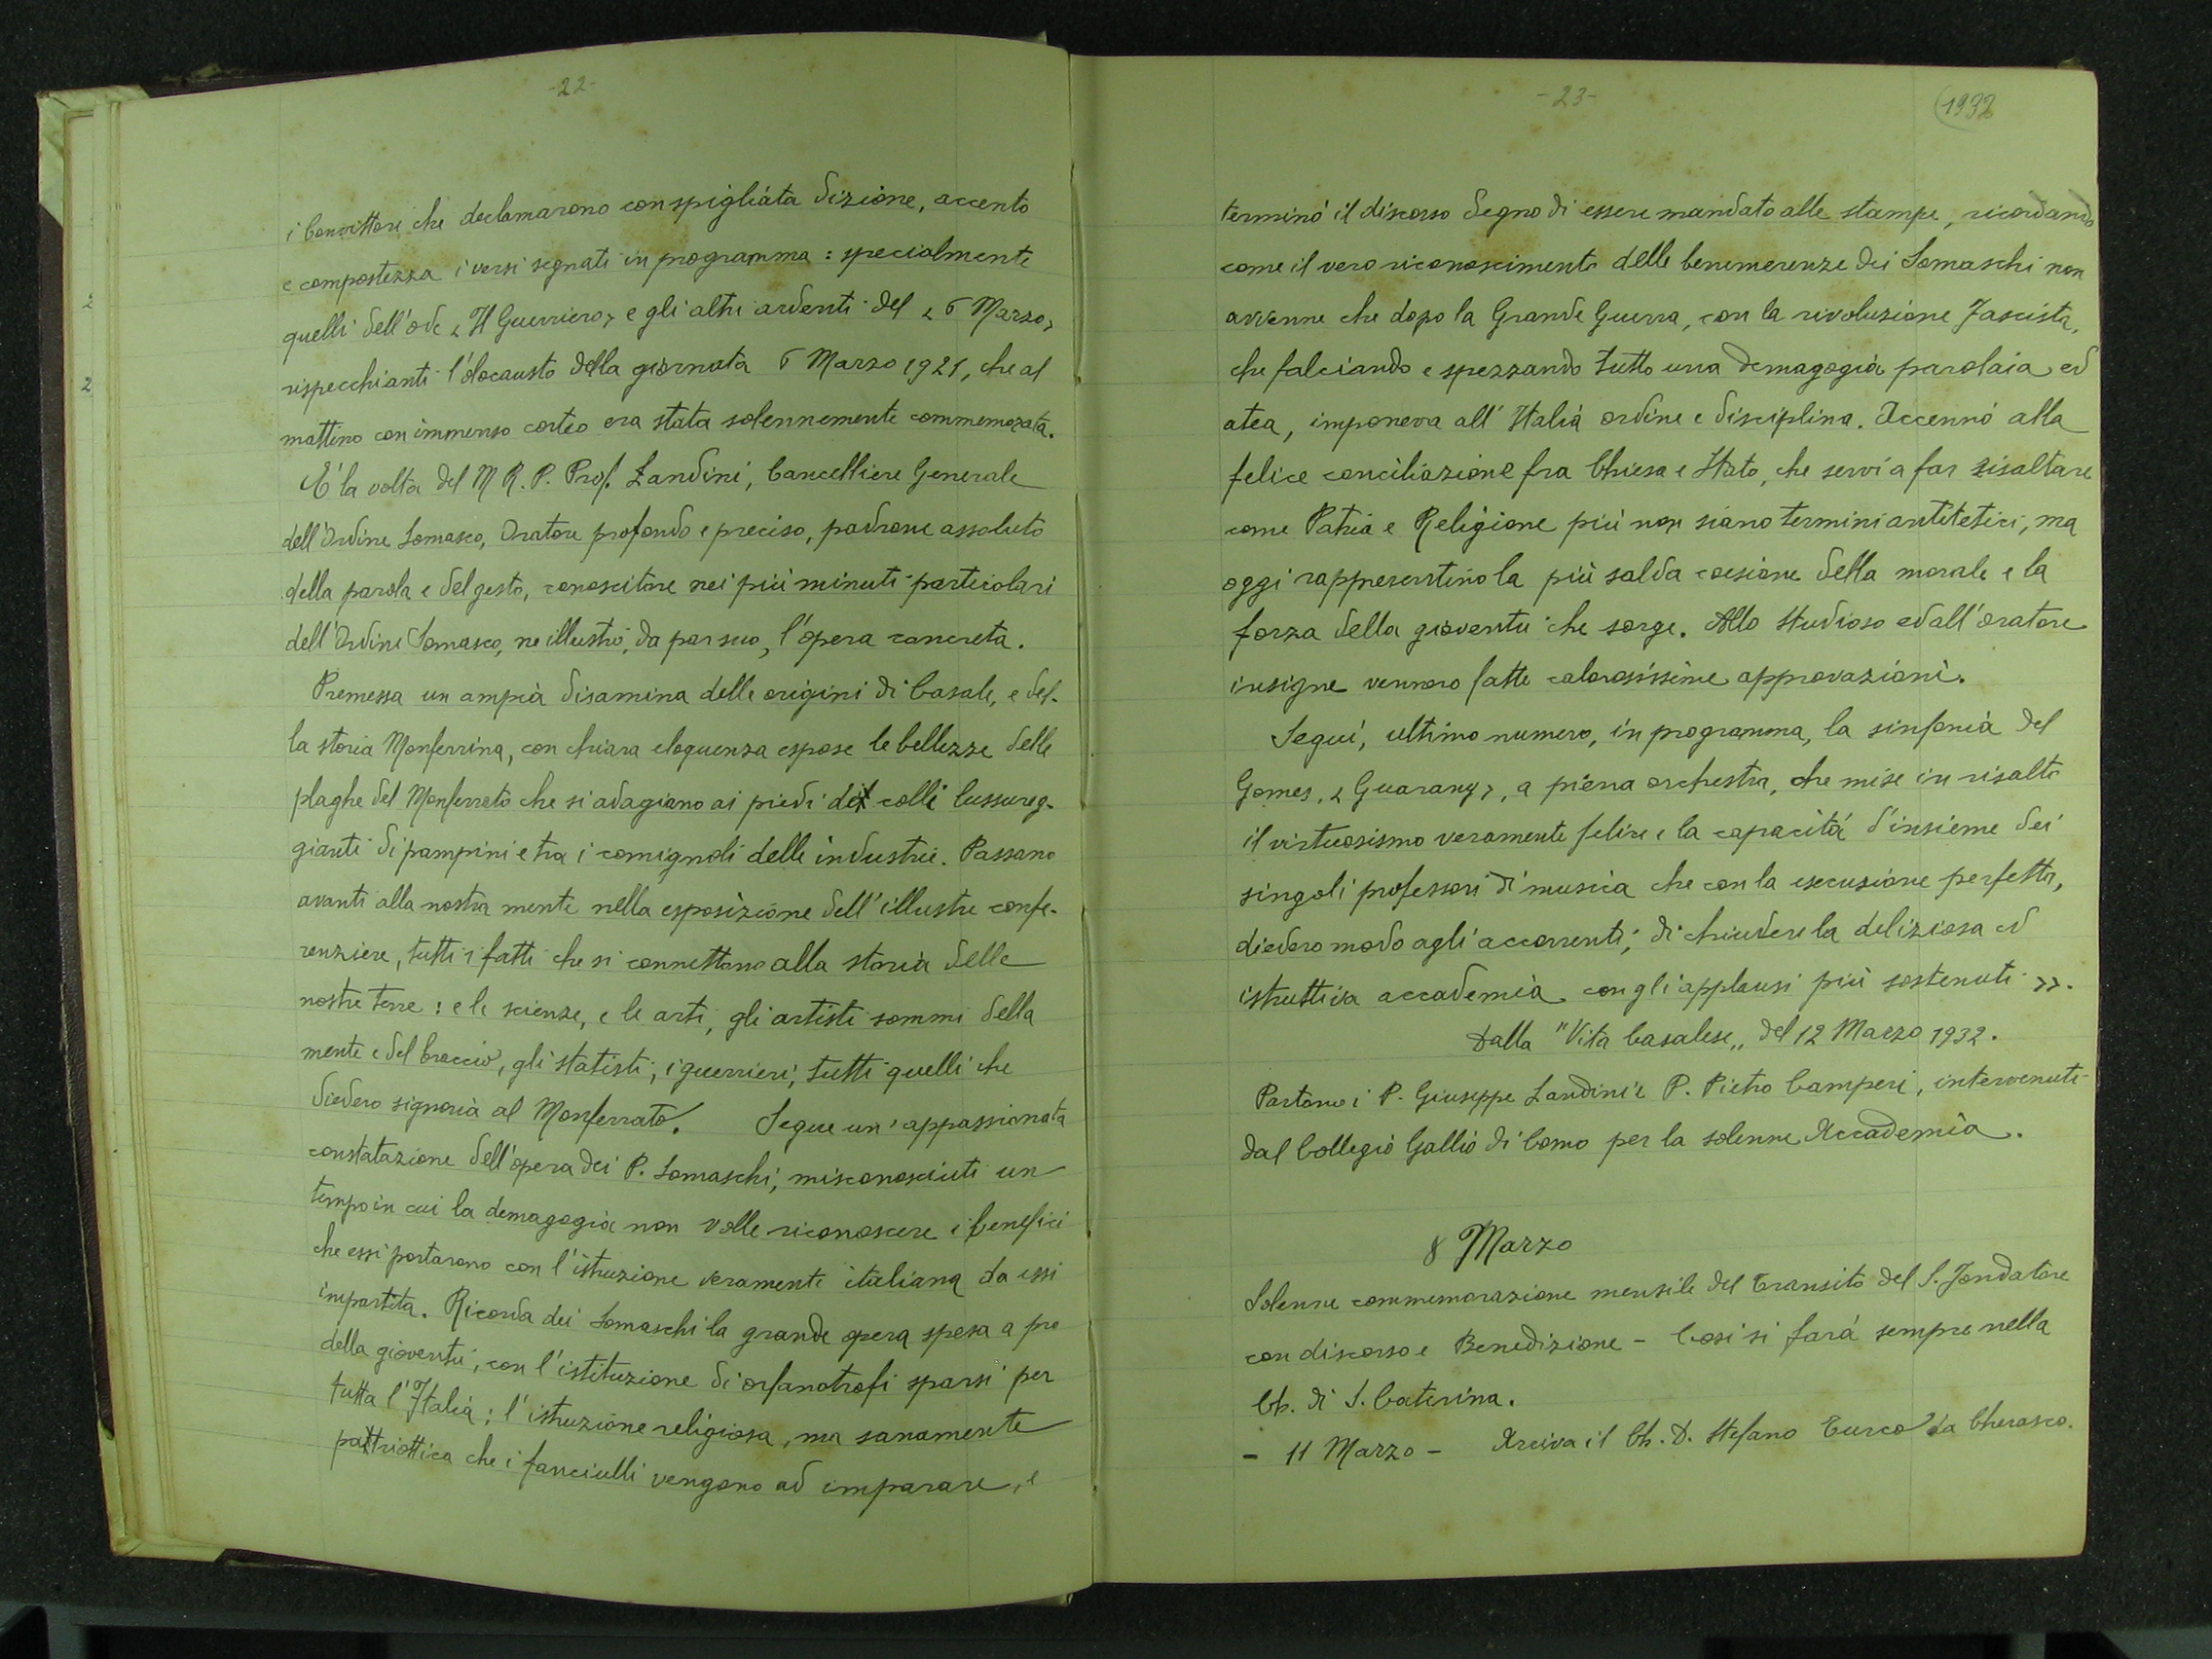 -22-
i Convittori che declamarono con spigliata dizione, accento
e compostezza i versi segnati in programma : specialmente
quelli dell'ode < Il Guerriero > e gli altri ardenti del < 6 Marzo >
rispecchianti l'olocausto della giornata 6 Marzo 1921, che al
mattino con immenso corteo era stata solennemente commemorata.
E' la volta del M R. P. Prof. Landini, Cancelliere Generale
dell'Ordine Somasco, Oratore profondo e preciso, padrone assoluto
della parola e del gesto, conoscitore nei più minuti particolari
dell'Ordine Somasco, ne illustrò, da par suo, l'opera concreta.
Premessa un ampia disamina delle origini di Casale, e del-
la storia Monferrina, con chiara eloquenza espose le bellezze delle
plaghe del Monferrato che si adagiano ai piedi dei colli lussureg-
gianti di pampini e tra i comignoli delle industrie. Passano
avanti alla nostra mente nella esposizione dell'illustre confe-
renziere, tutti i fatti che si connettono alla storia delle
nostre terre : e le scienze, e le arti, gli artisti sommi della
mente e del braccio, gli statisti, i guerrieri, tutti quelli che
diedero signoria al Monferrato. Segue un'appassionata
constatazione dell'opera dei P. Somaschi, misconosciuti un
tempo in cui la demagogia non volle riconoscere i benefici
che essi portarono con l'istruzione veramente italiana da essi
impartita. Ricorda dei Somaschi la grande opera spesa a pro
della gioventù, con l'istituzione di orfanotrofi sparsi per
tutta l'Italia ; l'istruzione religiosa, ma sanamente
pattriottica che i fanciulli vengono ad imparare, e
-23-
1932
terminò il discorso degno di essere mandato alle stampe, ricordando
come il vero riconoscimento delle benemerenze dei Somaschi non
avvenne che dopo la Grande Guerra, con la rivoluzione Fascista,
che falciando e spezzando tutto una demagogia parolaia ed
atea, imponeva all'Italia ordine e disciplina. Accennò alla
felice conciliazione fra Chiesa e Stato, che servì a far risaltare
come Patria e Religione più non siano termini antitetici, ma
oggi rappresentino la più salda coesione della morale e la
forza della gioventù che sorge. Allo studioso ed all'oratore
insigne vennero fatte calorosissime approvazioni.
Seguì, ultimo numero, in programma, la sinfonia del
Gomes, < Guarany >, a piena orchestra, che mise in risalto
il virtuosismo veramente felice e la capacità d'insieme dei
singoli professori di musica che con la esecuzione perfetta,
diedero modo agli accorrenti, di chiudere la deliziosa ed
istruttiva accademia con gli applausi più sostenuti >>.
Dalla "Vita Casalese„ del 12 Marzo 1932.
Partono i P. Giuseppe Landini e P. Pietro Camperi, intervenuti
dal Collegio Gallio di Como per la solenne Accademia.
8 Marzo
Solenne commemorazione mensile del Transito del S. Fondatore
con discorso e Benedizione - Così si farà sempre nella
Ch. di S. Caterina.
- 11 Marzo - Arriva il Ch. D. Stefano Turco da Cherasco.
2
2